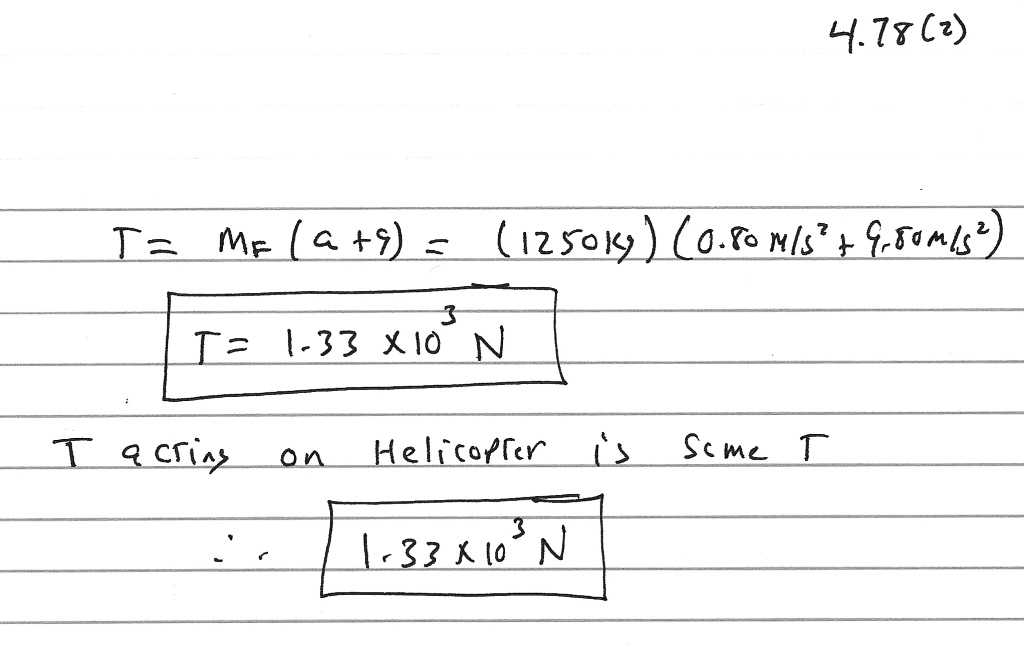 4.78(2)
T = MF (a + g) = (1250 kg) (0.80 m/s² + 9.80 m/s²)
T = 1.33 x 10³ N
T acting on Helicopter is same T
∴ 1.33 x 10³ N